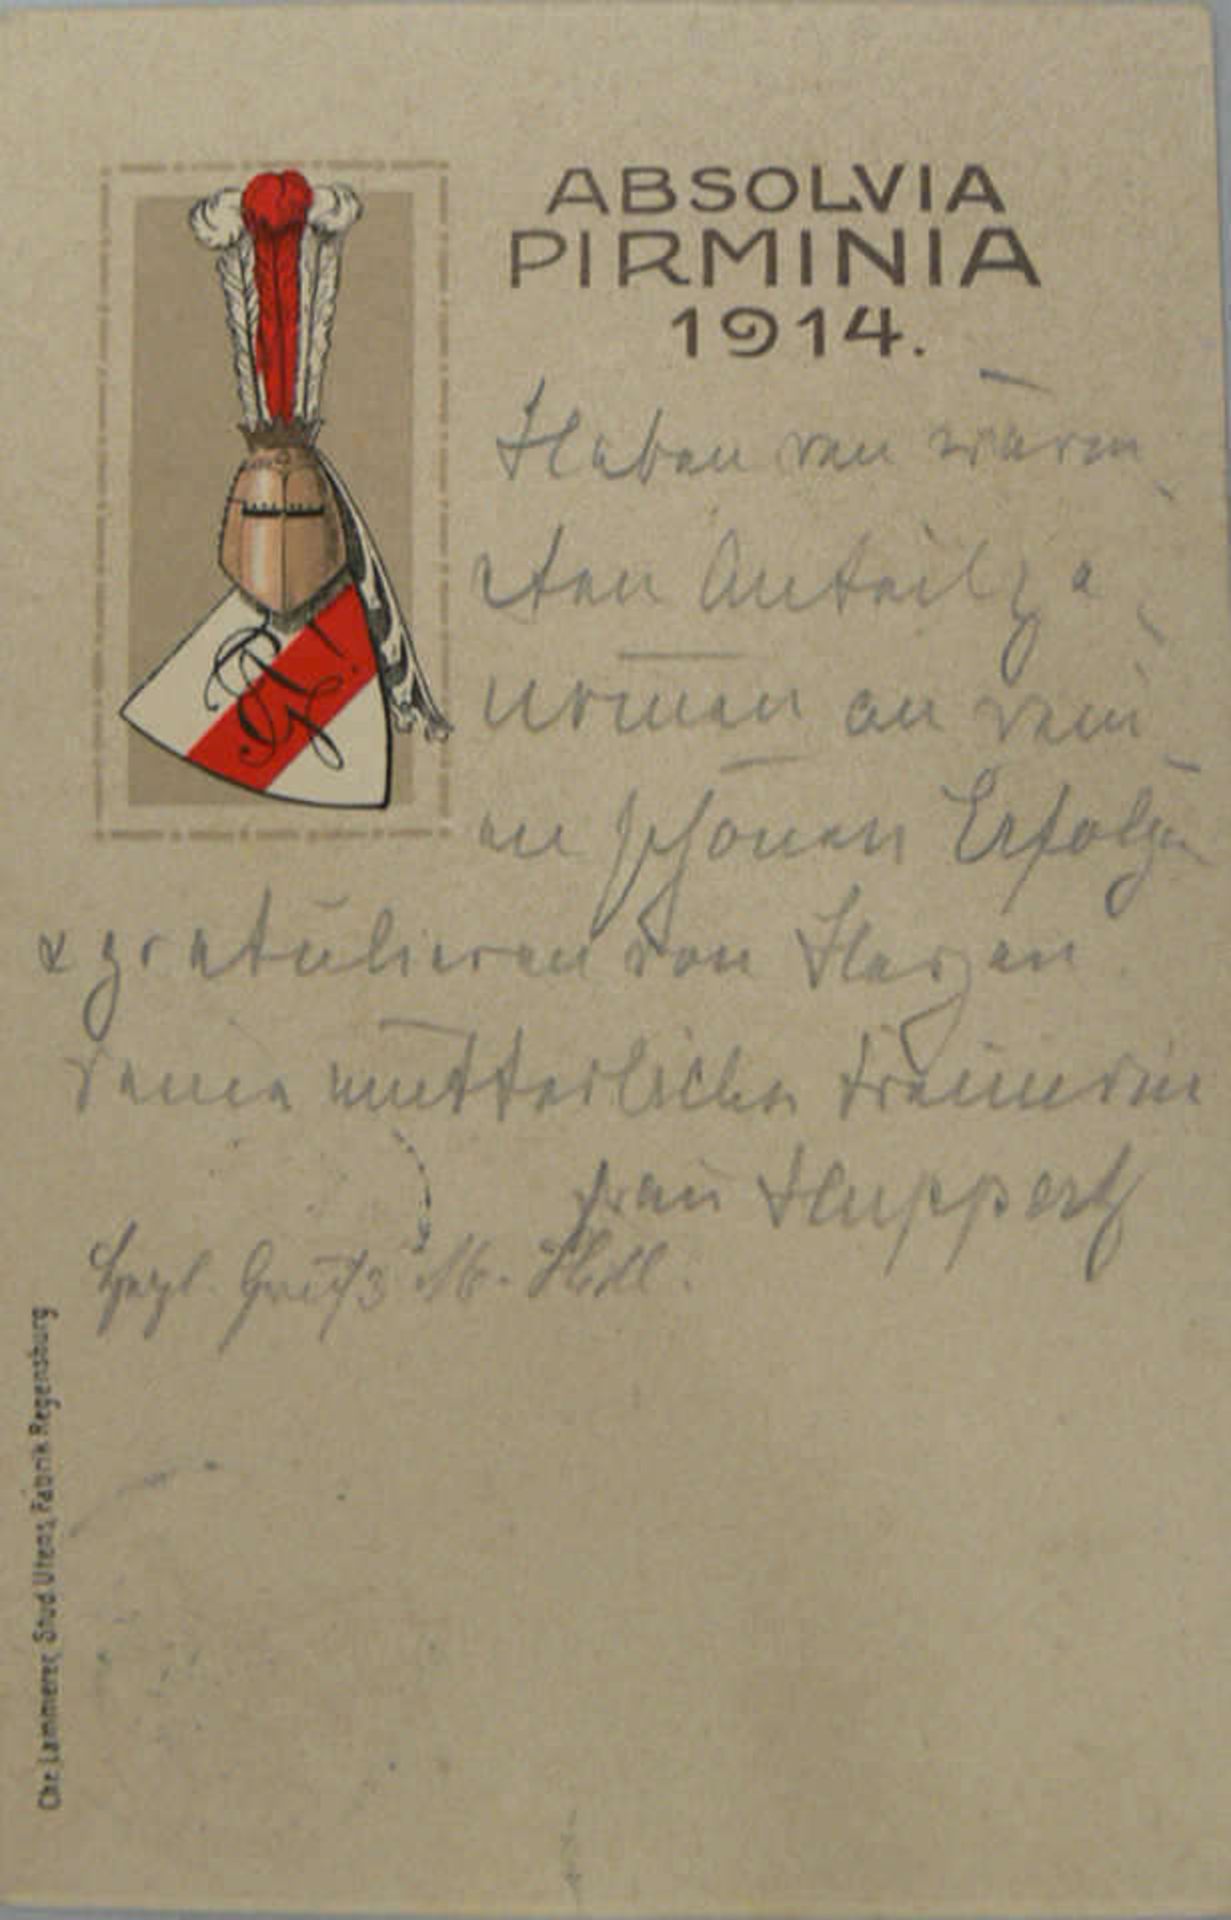 ABSOLVIA
PIRMINIA
1914.
Haben den wärm
sten Anteil ge
nommen an dein
en schönen Erfolgen
& gratulieren von Herzen
Deine mütterliche Freundin
Frau Huppert
Herzl. Gruß M.
Chr. Lammerer, Stud. Utens. Fabrik Regensburg